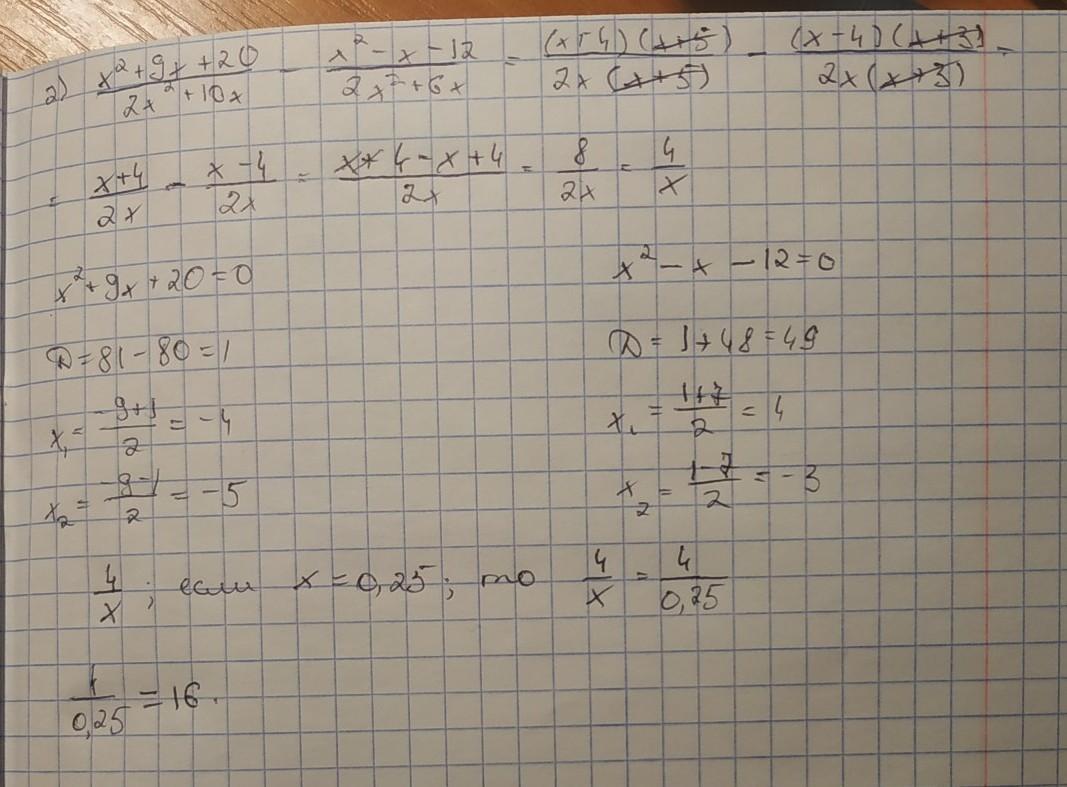 2) (x² + 9x + 20)/(2x² + 10x) - (x² - x - 12)/(2x² + 6x) = (x+4)(x+5)/(2x(x+5)) - (x-4)(x+3)/(2x(x+3)) =
= (x+4)/(2x) - (x-4)/(2x) = (x+4-x+4)/(2x) = 8/(2x) = 4/x
x² + 9x + 20 = 0 x² - x - 12 = 0
D = 81 - 80 = 1 D = 1 + 48 = 49
x₁ = (-9+1)/2 = -4 x₁ = (1+7)/2 = 4
x₂ = (-9-1)/2 = -5 x₂ = (1-7)/2 = -3
4/x ; если x = 0,25; то 4/x = 4/0,25
1/0,25 = 16.